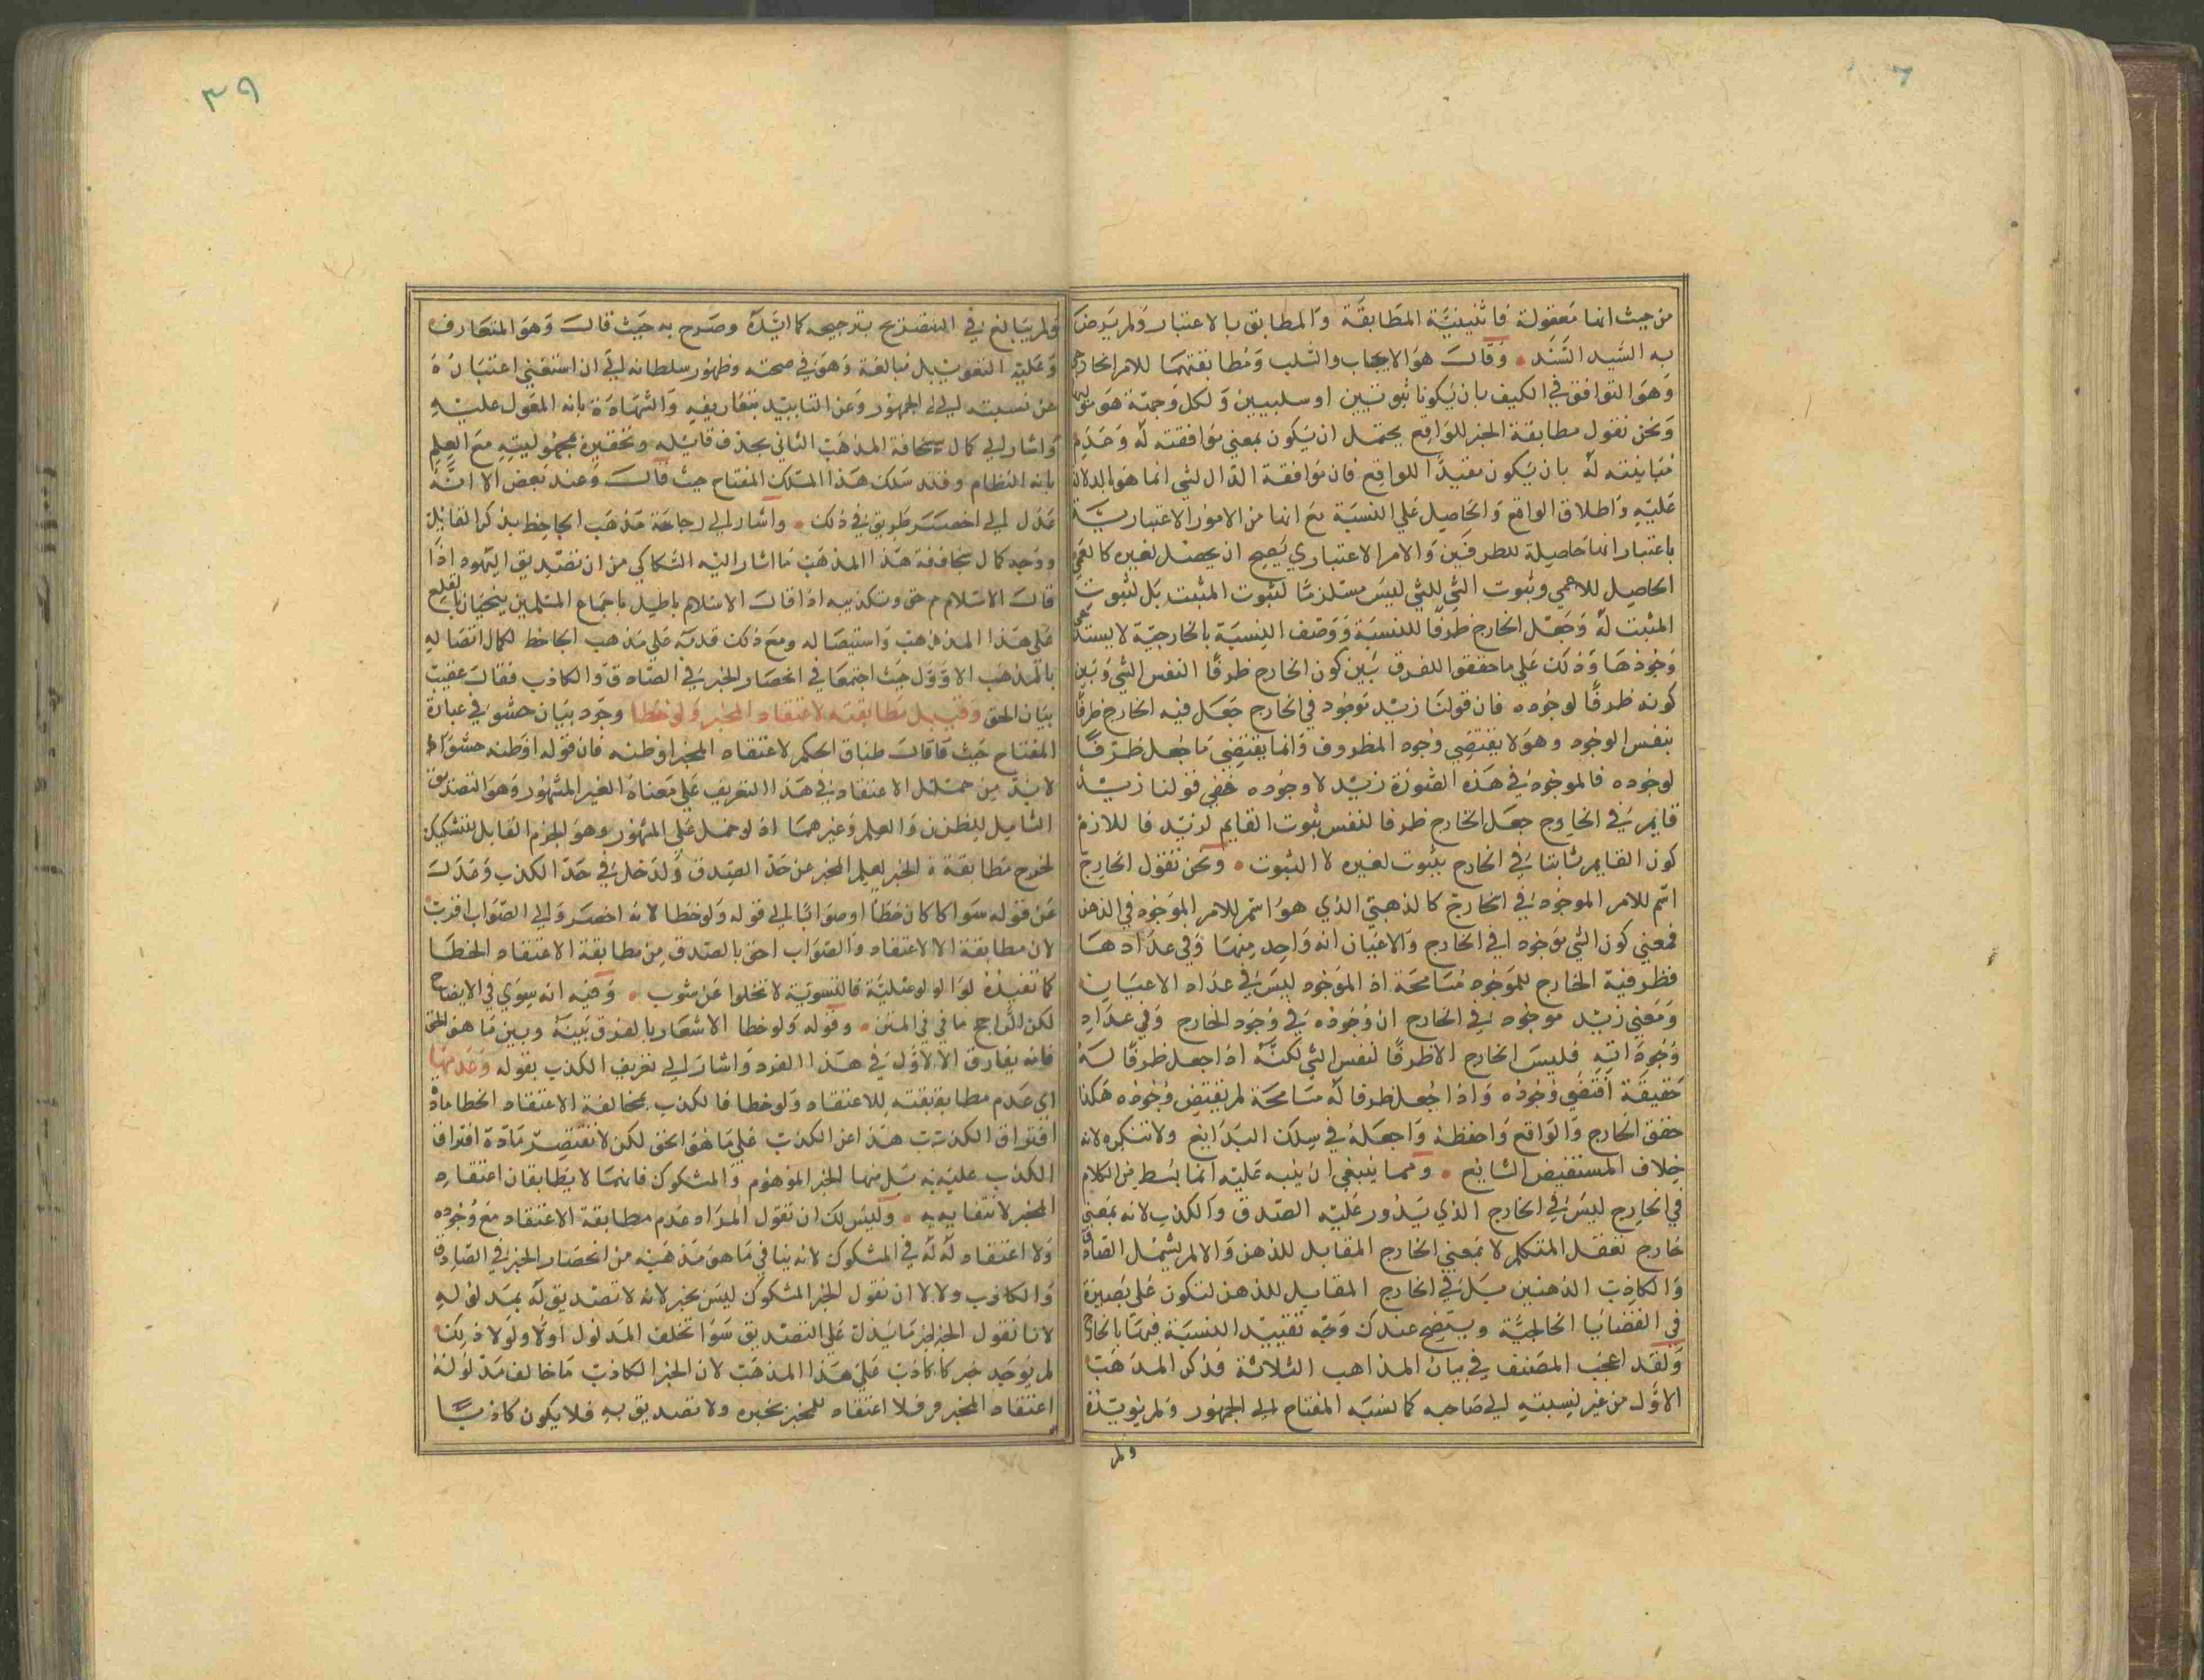 من حيث انها معقولة فاثنينيّة المطابقة والمطابق بالاعتبار ولم يرض
به السّيد السّند • وقال هو الايجاب والسلب ومطابقتهما للامر الخارجي
وهو التوافق في الكيف بان يكونا ثبوتيين او سلبيين ولكل وجهة هو موليها
ونحن نقول مطابقة الخبر للواقع يحتمل ان يكون بمعني موافقته له وعدم
مباينته له بان يكون مفيدًا للواقع فان موافقة الدّال لشي انما هو بالدلالة
عليه واطلاق الواقع والحاصل علي النسبة مع انها من الامور الاعتباريّة
باعتبار انها حاصلة للطرفين والامر الاعتباري يصح ان يحصل لغيره كالعمي
الحاصل للاعمي وثبوت الشي للشي ليس مستلزمًا لثبوت المثبت بل لثبوت
المثبت له وجعل الخارج ظرفًا للنسبة ووصف النسبة بالخارجيّة لا يستدعي
وجودها وذلك علي ما حققوا للفرق بين كون الخارج ظرفًا النفس الشي وبين
كونه ظرفًا لوجوده فان قولنا زيد موجود في الخارج جعل فيه الخارج ظرفًا
بنفس الوجود وهو لا يقتضي وجود المظروف وانما يقتضي ما جعل ظرفًا
لوجوده فالموجود في هذه الصّورة زيد لا وجوده ففي قولنا زيد
قايم في الخارج جعل الخارج ظرفا لنفس ثبوت القايم لزيد فاللازم
كون القايم ثابتا في الخارج بثبوت لغيره لا الثبوت • ونحن نقول الخارج
اسم للامر الموجود في الخارج كالذهبتي الذي هو اسم للامر الموجود في الذهن
فمعني كون الشي موجود افي الخارج والاعيان انه واحد منها وفي عدادها
فظرفية الخارج للموجود مسامحة اذ الموجود ليس في عداد الاعيان
ومعني زيد موجود في الخارج ان وجوده في وجود الخارج وفي عداد
وجوداته فليس الخارج الا ظرفًا لنفس الشي لكنّه اذا جعل ظرفًا له
حقيقة اقتضي وجوده واذا جعل ظرفا له مسامحة لم يقتض وجوده هكذا
حقق الخارج والواقع واحفظه واجعله في سلك البدايع ولا تنكره لانه
خلاف المستفيض الشايع • ومما ينبغي ان ينبه عليه انما بسط من الكلام
في الخارج ليس في الخارج الذي يدور عليه الصدق والكذب لانه بمعني
خارج تعقل المتكلم لا بمعني الخارج المقابل للذهن والا لم يشمل الصادق
والكاذب الذهنين بل في الخارج المقابل للذهن لتكون علي بصيرة
في القضايا الخارجيّة ويتضح عندك وجه تقييد النسبة فيها بالخارج
ولقد اعجب المصنف في بيان المذاهب الثلاثة فذكر المذهب
الاول من غير نسبته الي صاحبه كما نسبه المفتاح الي الجمهور ولم يويّده
ولم
٣٩
ولم يبالغ في التصريح بترجيحه كما ايّده وصرح به حيث قال وهو المتعارف
وعليه التعويل بل مبالغة وهو في صحته وظهور سلطانه الي ان استغني اعتباره
عن نسبته الي الجمهور وعن التاييد بتعاريفه والشهادة بانه المعول عليه
واشار الي كمال سخافة المذهب الثاني بحذف قايله وتحقيره بمجهوليته مع العلم
بانه النظام وقد سلك هذا المسلك المفتاح حيث قال وعند بعض الا انّه
عدل الي اخصر طريق في ذلك • واشار الي رجاحة مذهب الجاحظ بذكر القايل
ووجه كمال سخافة هذا المذهب ما اشار اليه السّكاكي من ان تصديق اليهود اذا
قال الاسلام حق وتكذيبه اذا قال الاسلام باطل باجماع المسلمين ينحيان بالقلع
علي هذا المذهب واستيصاله ومع ذلك قدمه علي مذهب الجاحظ لكمال اتصاله
بالمذهب الاوّل حيث اجتمعا في انحصار الخبر في الصّادق والكاذب فقال عقيب
بيان الحق وقيل مطابقته لاعتقاد المخبر ولو خطا وجرد بيان حشو في عبارة
المفتاح حيث قاقال طباق الحكم لاعتقاد المخبر او ظنه فان قوله او ظنه حشو اذ
لا بد من حمل الاعتقاد في هذا التعريف علي معناه الغير المشهور وهو التصديق
الشامل للظن والعلم وغيرهما اذ لو حمل علي المشهور وهو الجزم القابل للتشكيك
لخرج مطابقة الخبر لعلم المخبر عن حدّ الصدق ولدخل في حدّ الكذب وعدل
عن قوله سوا كان كان خطأ او صوابًا الي قوله ولو خطا لانه اخصر والي الصّواب اقرب
لان مطابقة الاعتقاد والصّواب احق بالصدق من مطابقة الاعتقاد الخطا
كما تفيده لو الو لو صليّة فالتسوية لا تخلوا عن شوب • وفيه انه سوي في الايضاح
لكن الرّاجح ما في في المتن • وقوله ولو خطا الاشعار بالفرق بينه وبين ما هو الحق
فانه يفارق الاول في هذا الفرد واشار الي تعريف الكذب بقوله وعدمها
اي عدم مطابقته للاعتقاد ولو خطا فالكذب بمخالفة الاعتقاد الخطا مادة
افتراق الكذب هذا عن الكذب علي ما هو الحق لكن لا تقتصر مادة افتراق
الكذب عليه بل منها الخبر الموهوم والمشكوك فانهما لا يطابقان اعتقاد
المخبر لانتفايه • وليس لك ان تقول المراد عدم مطابقة الاعتقاد مع وجوده
ولا اعتقاد له له في المشكوك لانه ينافي ما هو مذهبه من انحصار الخبر في الصادق
والكاذب ولا لا ان نقول الخبر المشكوك ليس بخبر لانه لا تصديق له بمدلوله
لانا نقول الخبر ما يدل علي التصديق سوا تخلف المدلول اولا ولولا ذلك
لم يوجد خبر كاذب علي هذا المذهب لان الخبر الكاذب ما خالف مدلوله
اعتقاد المخبر فلا اعتقاد للمخبر بخبره ولا تصديق به فلا يكون كاذبًا